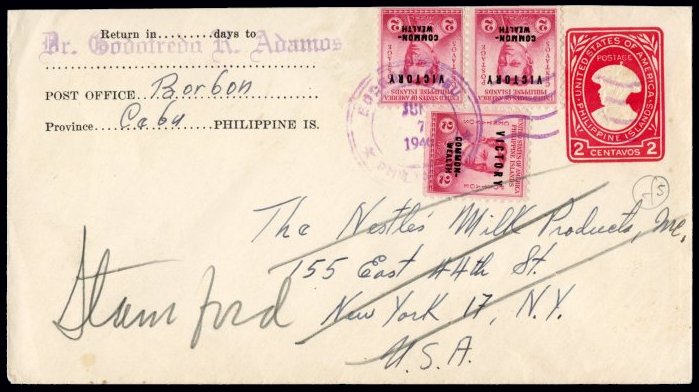 Return in.........days to
Dr. Godofredo R. Adamos
POST OFFICE Borbon
Province Cebu PHILIPPINE IS.
2
COMMON-
WEALTH
VICTORY
POSTAGE
PHILIPPINE ISLANDS
UNITED STATES OF AMERICA
2
COMMON-
WEALTH
VICTORY
POSTAGE
PHILIPPINE ISLANDS
UNITED STATES OF AMERICA
UNITED STATES OF AMERICA
POSTAGE
PHILIPPINE ISLANDS
2 CENTAVOS 2
JUN
7
UNITED STATES OF AMERICA
PHILIPPINE ISLANDS
2
VICTORY
COMMON-
WEALTH
5
The Nestle's Milk Products, Inc.
155 East 44th St.
New York 17, N.Y.
U.S.A.
Stamford